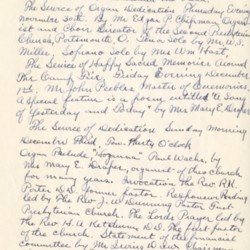 The Service of Organ Dedication Thursday Evening
November 30th. By Mr Edgar P Chipman, Organ-
ist and Choir Director of the Second Presbyterian
Church, Portsmouth, O. Tenor Solo by Mr. W. J.
Miller. Soprano Solo by Mrs Wm Hart.
The Service of Happy Sacred Memories Around
The Camp Fire, Friday Evening December
1st. Mr John Peebles Master of Ceremonies.
A Special feature is a poem entitled "A Song
of Yesterday and Today" by Mrs Mary E. Draper
The Service of Dedication Sunday Morning
December Third, Ten Thirty O'clock
Organ Prelude "Hosanna" Paul Wachs, by
Mrs Mary E. Draper, organist of this Church
for many years. Invocation, the Rev. R.K.
Porter D.D. former Pastor. Responsive Reading
led by The Rev J. W. Dunning Pastor First
Presbyterian Church. The Lords Prayer, led by
The Rev H. A. Ketchum D.D. the first pastor
of this Church. Statement of the financial
Committee by Mr